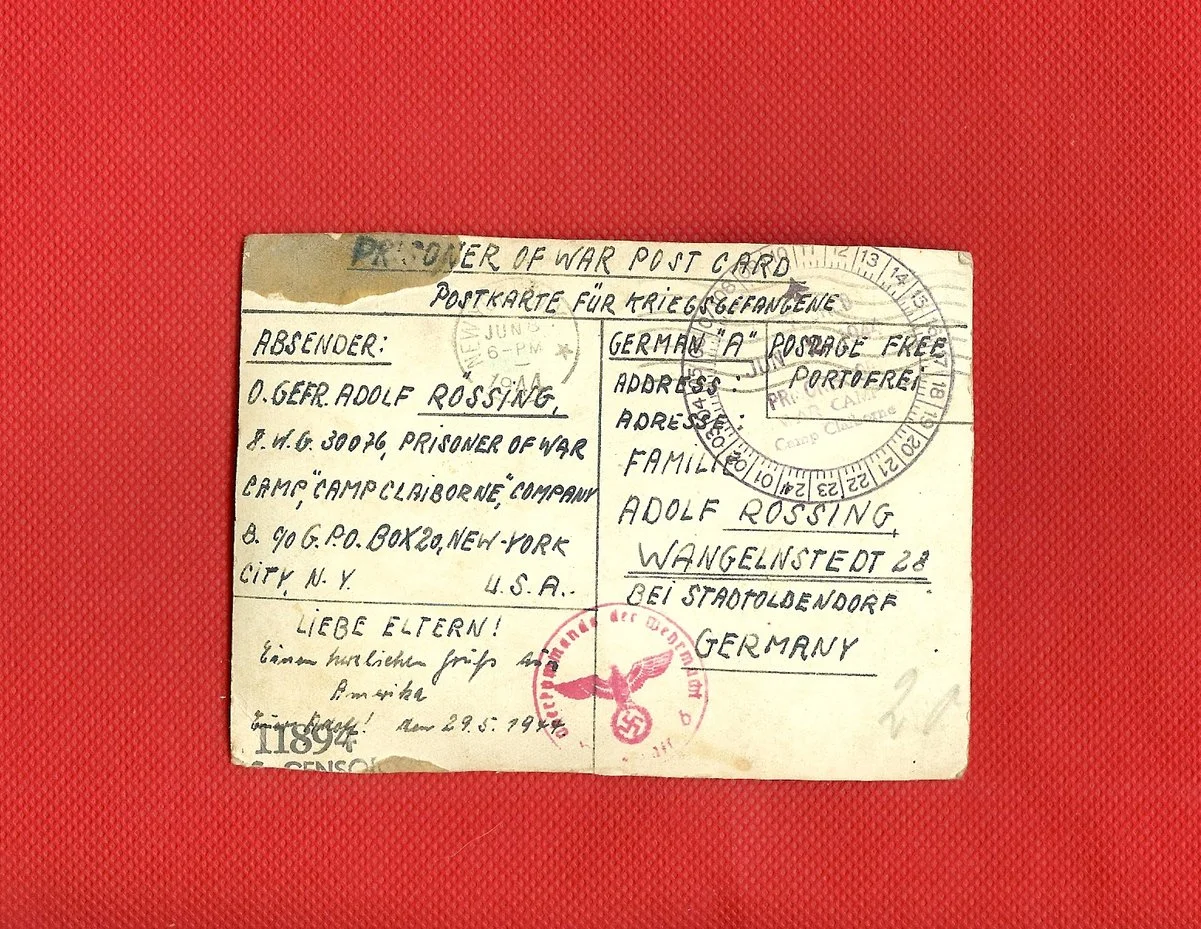 PRISONER OF WAR POST CARD
POSTKARTE FÜR KRIEGSGEFANGENE
ABSENDER:
O. GEFR. ADOLF RÖSSING,
8.W.G. 30076, PRISONER OF WAR
CAMP, "CAMP CLAIBORNE", COMPANY
B. c/o G.P.O. BOX 20, NEW-YORK
CITY, N.Y. U.S.A.
LIEBE ELTERN!
Einen herzlichen Gruß aus
Amerika
Euer Adolf! den 29.5.1944
11894
GERMAN "A" POSTAGE FREE
PORTOFREI
ADDRESS:
ADRESSE:
FAMILIE
ADOLF RÖSSING,
WANGELNSTEDT 28
BEI STADTOLDENDORF
GERMANY
NEW
JUN
6-PM
1944
JUN
WAR CAMP
Camp Claiborne
01 02 03 04 05 08 10 11 12 13 14 15 16 17 18 19 20 21 22 23 24
Oberkommando der Wehrmacht
b
20